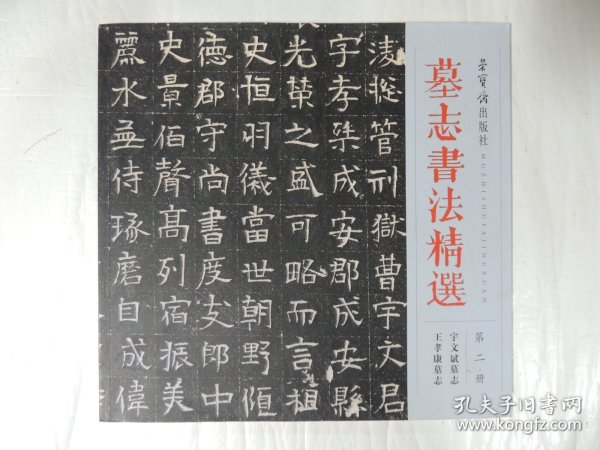 榮寶齋出版社
墓志書法精選
MUZHISHUFAJINGXUAN
第二册
宇文斌墓志
王孝康墓志
淩揔管刑獄曹宇文君
字孝桀成安郡成安縣
光榮之盛可略而言祖
史恒羽儀當世朝野傾
德郡守尚書度支郎中
史景伯聲高列宿振美
麗水侍琢磨自成偉
孔夫子旧书网